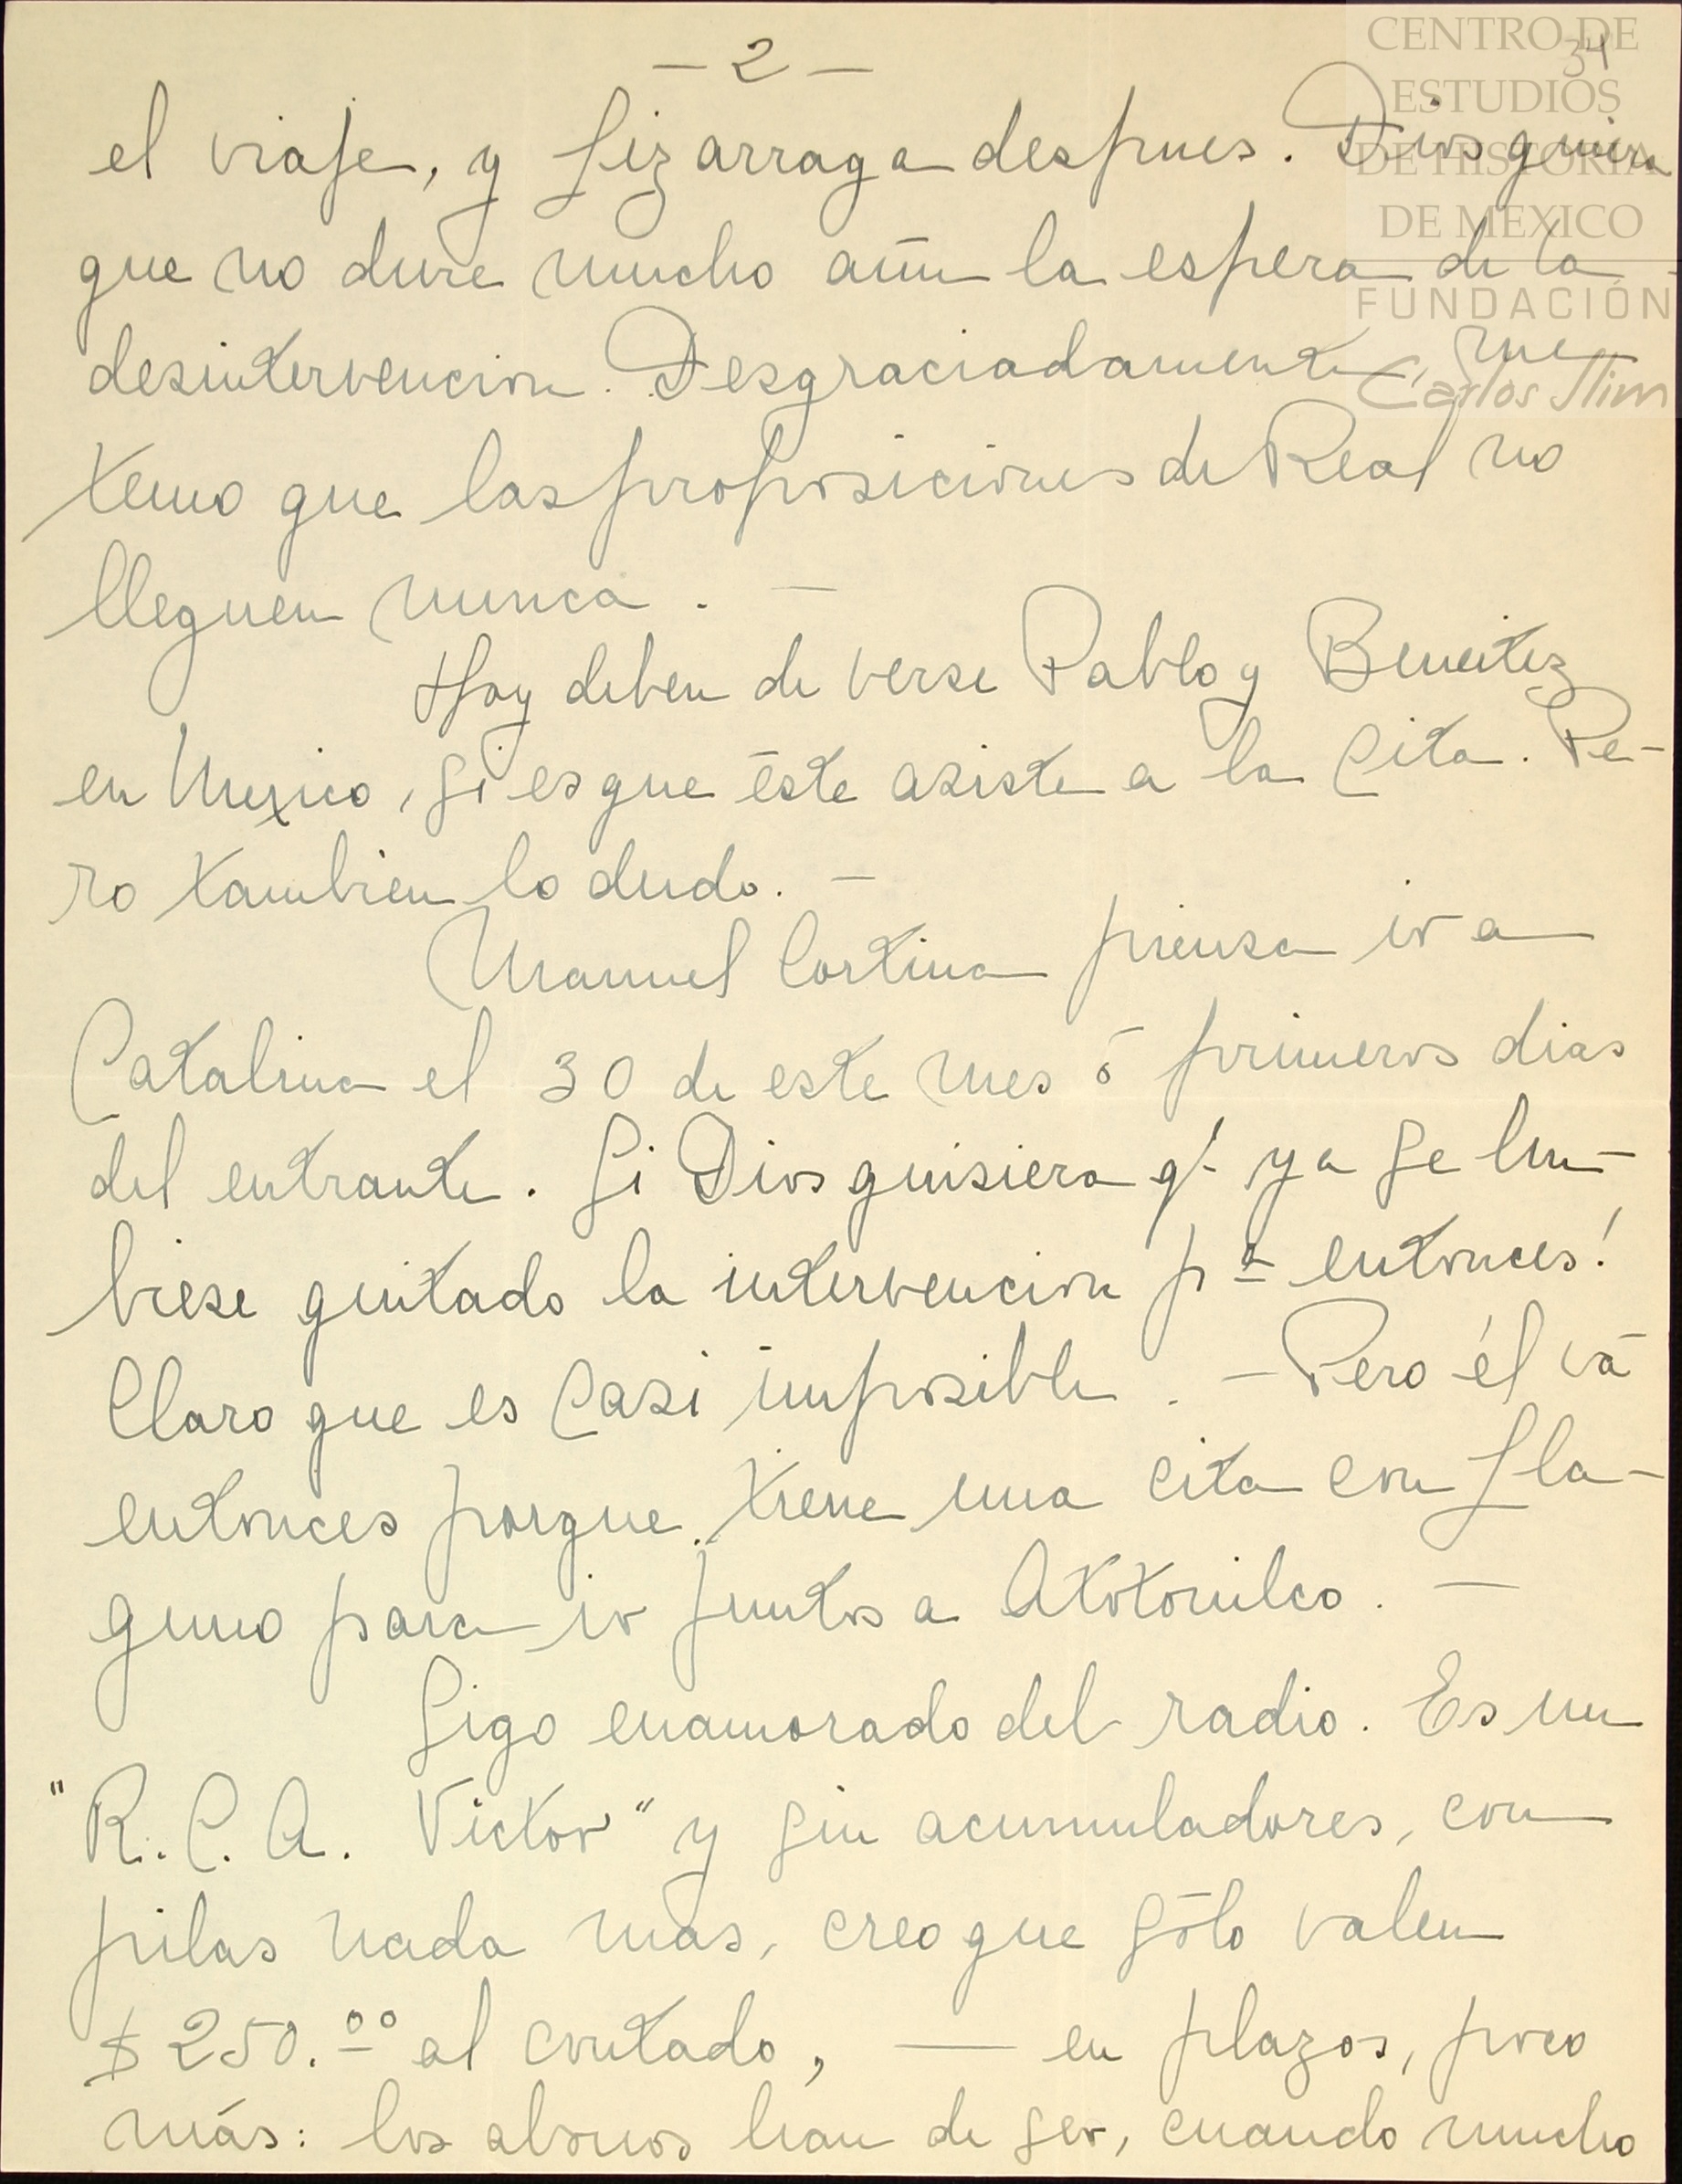 - 2 -
34
CENTRO DE
ESTUDIOS
DE HISTORIA
DE MEXICO
FUNDACIÓN
Carlos Slim
el viaje, y Lizarraga despues. Dios quiera
que no dure mucho aún la espera de la
desintervencion. Desgraciadamente, me
temo que las proposiciones de Real no
lleguen nunca. —
Hoy deben de verse Pablo y Beneitez
en Mexico, si es que éste asiste a la cita. Pe-
ro tambien lo dudo. —
Manuel Cortina piensa ir a
Catalina el 30 de este mes ó primeros dias
del entrante. Si Dios quisiera q' ya se hu-
biese quitado la intervencion pª entonces!
Claro que es casi imposible. — Pero él vá
entonces porque tiene una cita con La-
guno para ir juntos a Atotonilco. —
Sigo enamorado del radio. Es un
"R.C.A. Victor" y sin acumuladores, con
pilas nada mas, creo que sólo valen
$ 250.00 al contado, — en plazos, poco
más: los abonos han de ser, cuando mucho